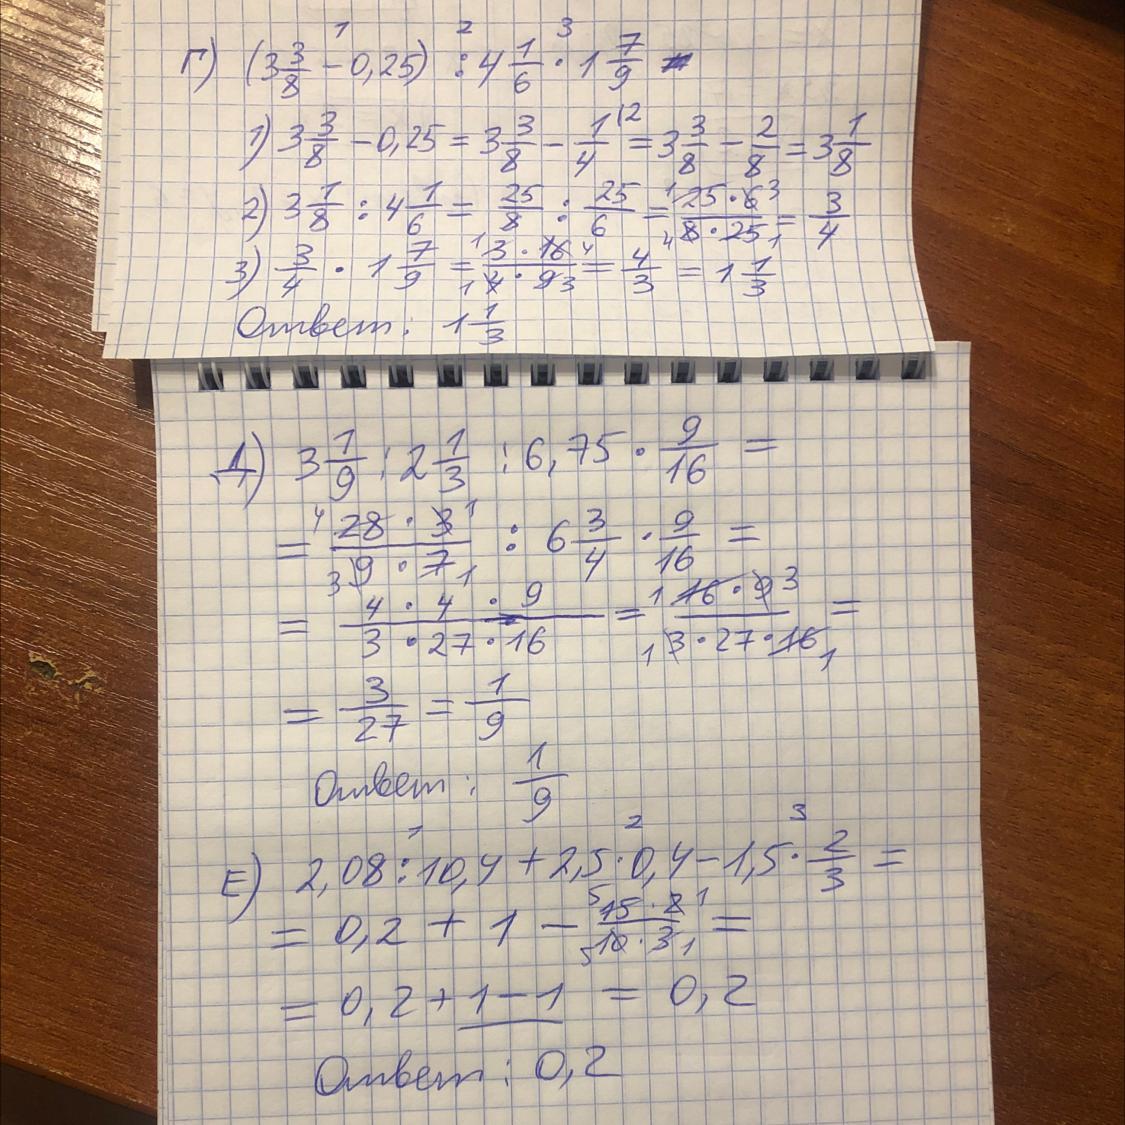 1 2 3
Г) (3 3/8 - 0,25) : 4 1/6 · 1 7/9
1) 3 3/8 - 0,25 = 3 3/8 - 1/4 (2 = 3 3/8 - 2/8 = 3 1/8
2) 3 1/8 : 4 1/6 = 25/8 : 25/6 = 1 25 · 6 3 / 4 8 · 25 1 = 3/4
3) 3/4 · 1 7/9 = 1 3 · 16 4 / 1 4 · 9 3 = 4/3 = 1 1/3
Ответ: 1 1/3
Д) 3 1/9 : 2 1/3 : 6,75 · 9/16 =
= 4 28 · 3 1 / 3 9 · 7 1 : 6 3/4 · 9/16 =
= 4 · 4 · 9 / 3 · 27 · 16 = 1 16 · 9 3 / 1 3 · 27 · 16 1 =
= 3/27 = 1/9
Ответ: 1/9
1 2 3
Е) 2,08 : 10,4 + 2,5 · 0,4 - 1,5 · 2/3 =
= 0,2 + 1 - 5 15 · 2 1 / 5 10 · 3 1 =
= 0,2 + 1 - 1 = 0,2
Ответ: 0,2